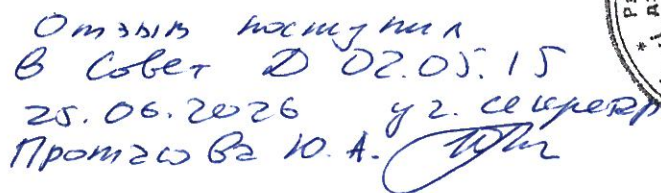 Отзыв поступил
в Совет Д 02.05.15
25.06.2026 уч. секретарь
Протасова Ю. А.